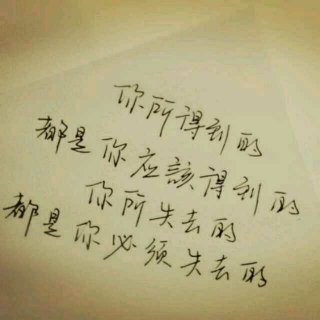 你所得到的
都是你应該得到的
你所失去的
都是你必须失去的